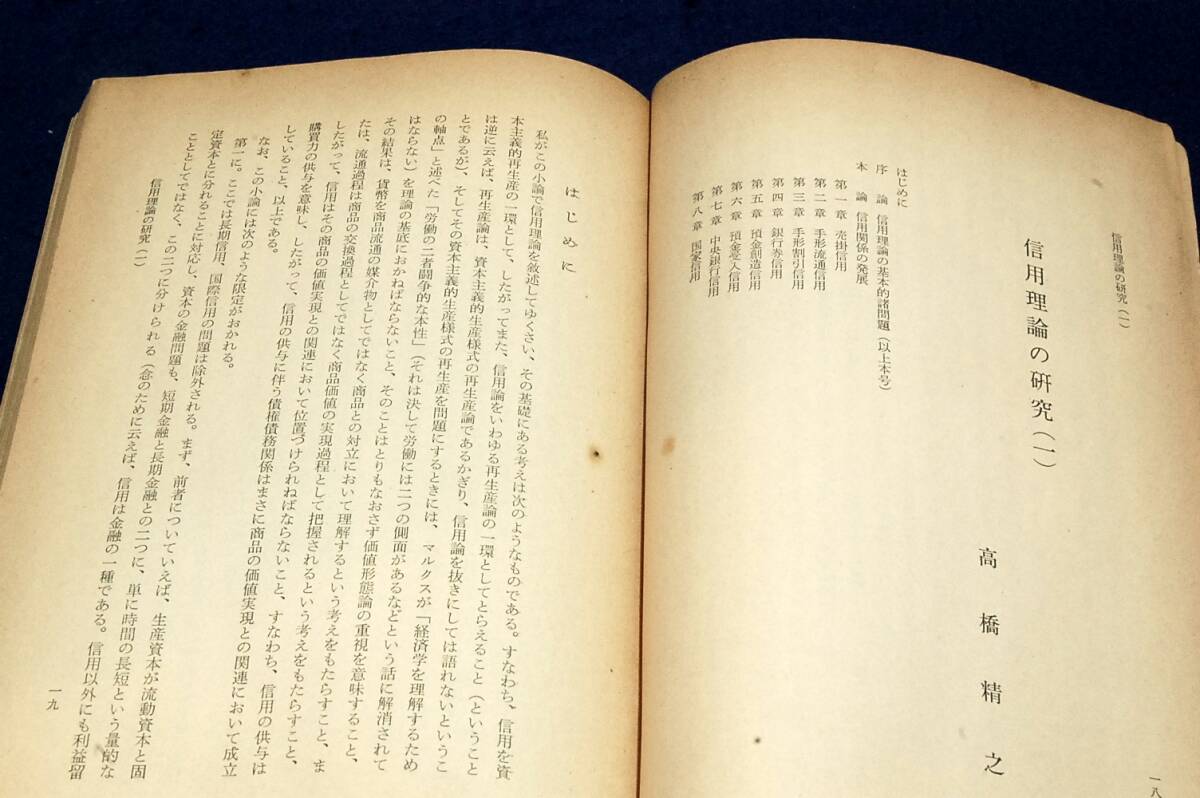 信用理論の研究(一)
信用理論の研究(一)
高橋精之
はじめに
序論 信用理論の基本的諸問題(以上本号)
本論 信用関係の発展
第一章 売掛信用
第二章 手形流通信用
第三章 手形割引信用
第四章 銀行券信用
第五章 預金創造信用
第六章 預金受入信用
第七章 中央銀行信用
第八章 国家信用
一八
はじめに
私がこの小論で信用理論を敘述してゆくさい、その基礎にある考えは次のようなものである。すなわち、信用を資
本主義的再生産の一環として、したがってまた、信用論をいわゆる再生産論の一環としてとらえること(ということ
は逆に云えば、再生産論は、資本主義的生産様式の再生産論であるかぎり、信用論を抜きにしては語れないというこ
とであるが)、そしてその資本主義的生産様式の再生産を問題にするときには、マルクスが「経済学を理解するため
の軸点」と述べた「労働の二者闘争的な本性」(それは決して労働には二つの側面があるなどという話に解消されて
はならない)を理論の基底におかねばならないこと、そのことはとりもなおさず価値形態論の重視を意味すること、
その結果は、貨幣を商品流通の媒介物としてではなく商品との対立において理解するという考えをもたらすこと、ま
たは、流通過程は商品の交換過程としてではなく商品価値の実現過程として把握されるという考えをもたらすこと、
したがって、信用はその商品の価値実現との関連において位置づけられねばならないこと、すなわち、信用の供与は
購買力の供与を意味し、したがって、信用の供与に伴う債権債務関係はまさに商品の価値実現との関連において成立
していること、以上である。
なお、この小論には次のような限定がおかれる。
第一に。ここでは長期信用、国際信用の問題は除外される。まず、前者についていえば、生産資本が流動資本と固
定資本とに分れることに対応し、資本の金融問題も、短期金融と長期金融との二つに、単に時間の長短という量的な
こととしてではなく、この二つに分けられる(念のために云えば、信用は金融の一種である。信用以外にも利益留
信用理論の研究(一)
一九